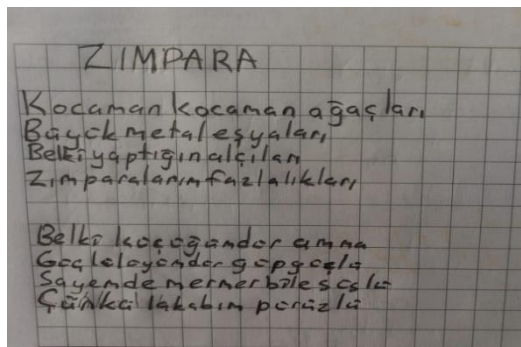 ZIMPARA
Kocaman kocaman ağaçları
Büyük metal eşyaları
Belki yaptığın alçıları
Zımparalarım fazlalıkları
Belki küçüğümdür amma
Güçlüleyimdir güpgüçlü
Sayemde mermer bile süslü
Çünkü lakabım pürüzlü